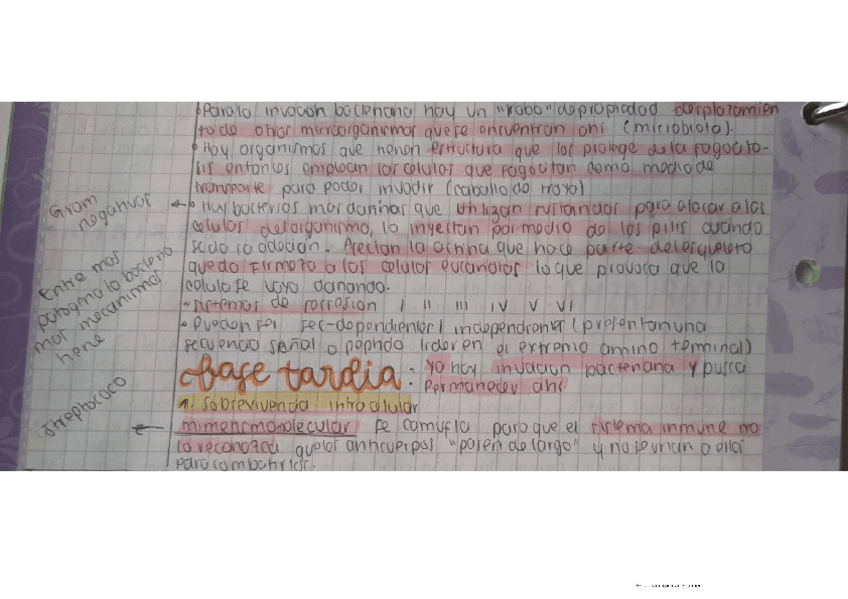 Para la invacion bacteriana hay un "robo" de propiedad desplazamien
to de otros microorganismos que se encuentran ahi (microbiota).
• Hay organismos que tienen estructura que los protege de la fagocito-
sis entonces emplean las celulas que fagocitan como medio de
transporte para poder invadir (caballo de troya)
Gram negativos ← • Hay bacterias mas dañinas que utilizan sustancias para atacar a las
celulas del organismo, lo inyectan por medio de los pilis cuando
se da la adecion. Afectan la actina que hace parte del esqueleto
que da firmeza a las celulas eucariotas lo que provoca que la
celula se vaya dañando.
Entre mas patogena la bacteria mas mecanismos tiene
• sistemas de I II III IV V VI
• Pueden ser sec-dependientes / independientes (presentan una
secuencia señal o peptido lider en el extremo amino terminal)
fase tardia: Ya hay invacion bacteriana y busca
permanecer ahi
1. Sobrevivencia intracelular
Streptococo ← mimetismo molecular se camufla para que el sistema inmune no
lo reconozca que los anticuerpos "pasen de largo" y no se unan a ellas
para combatirlas.